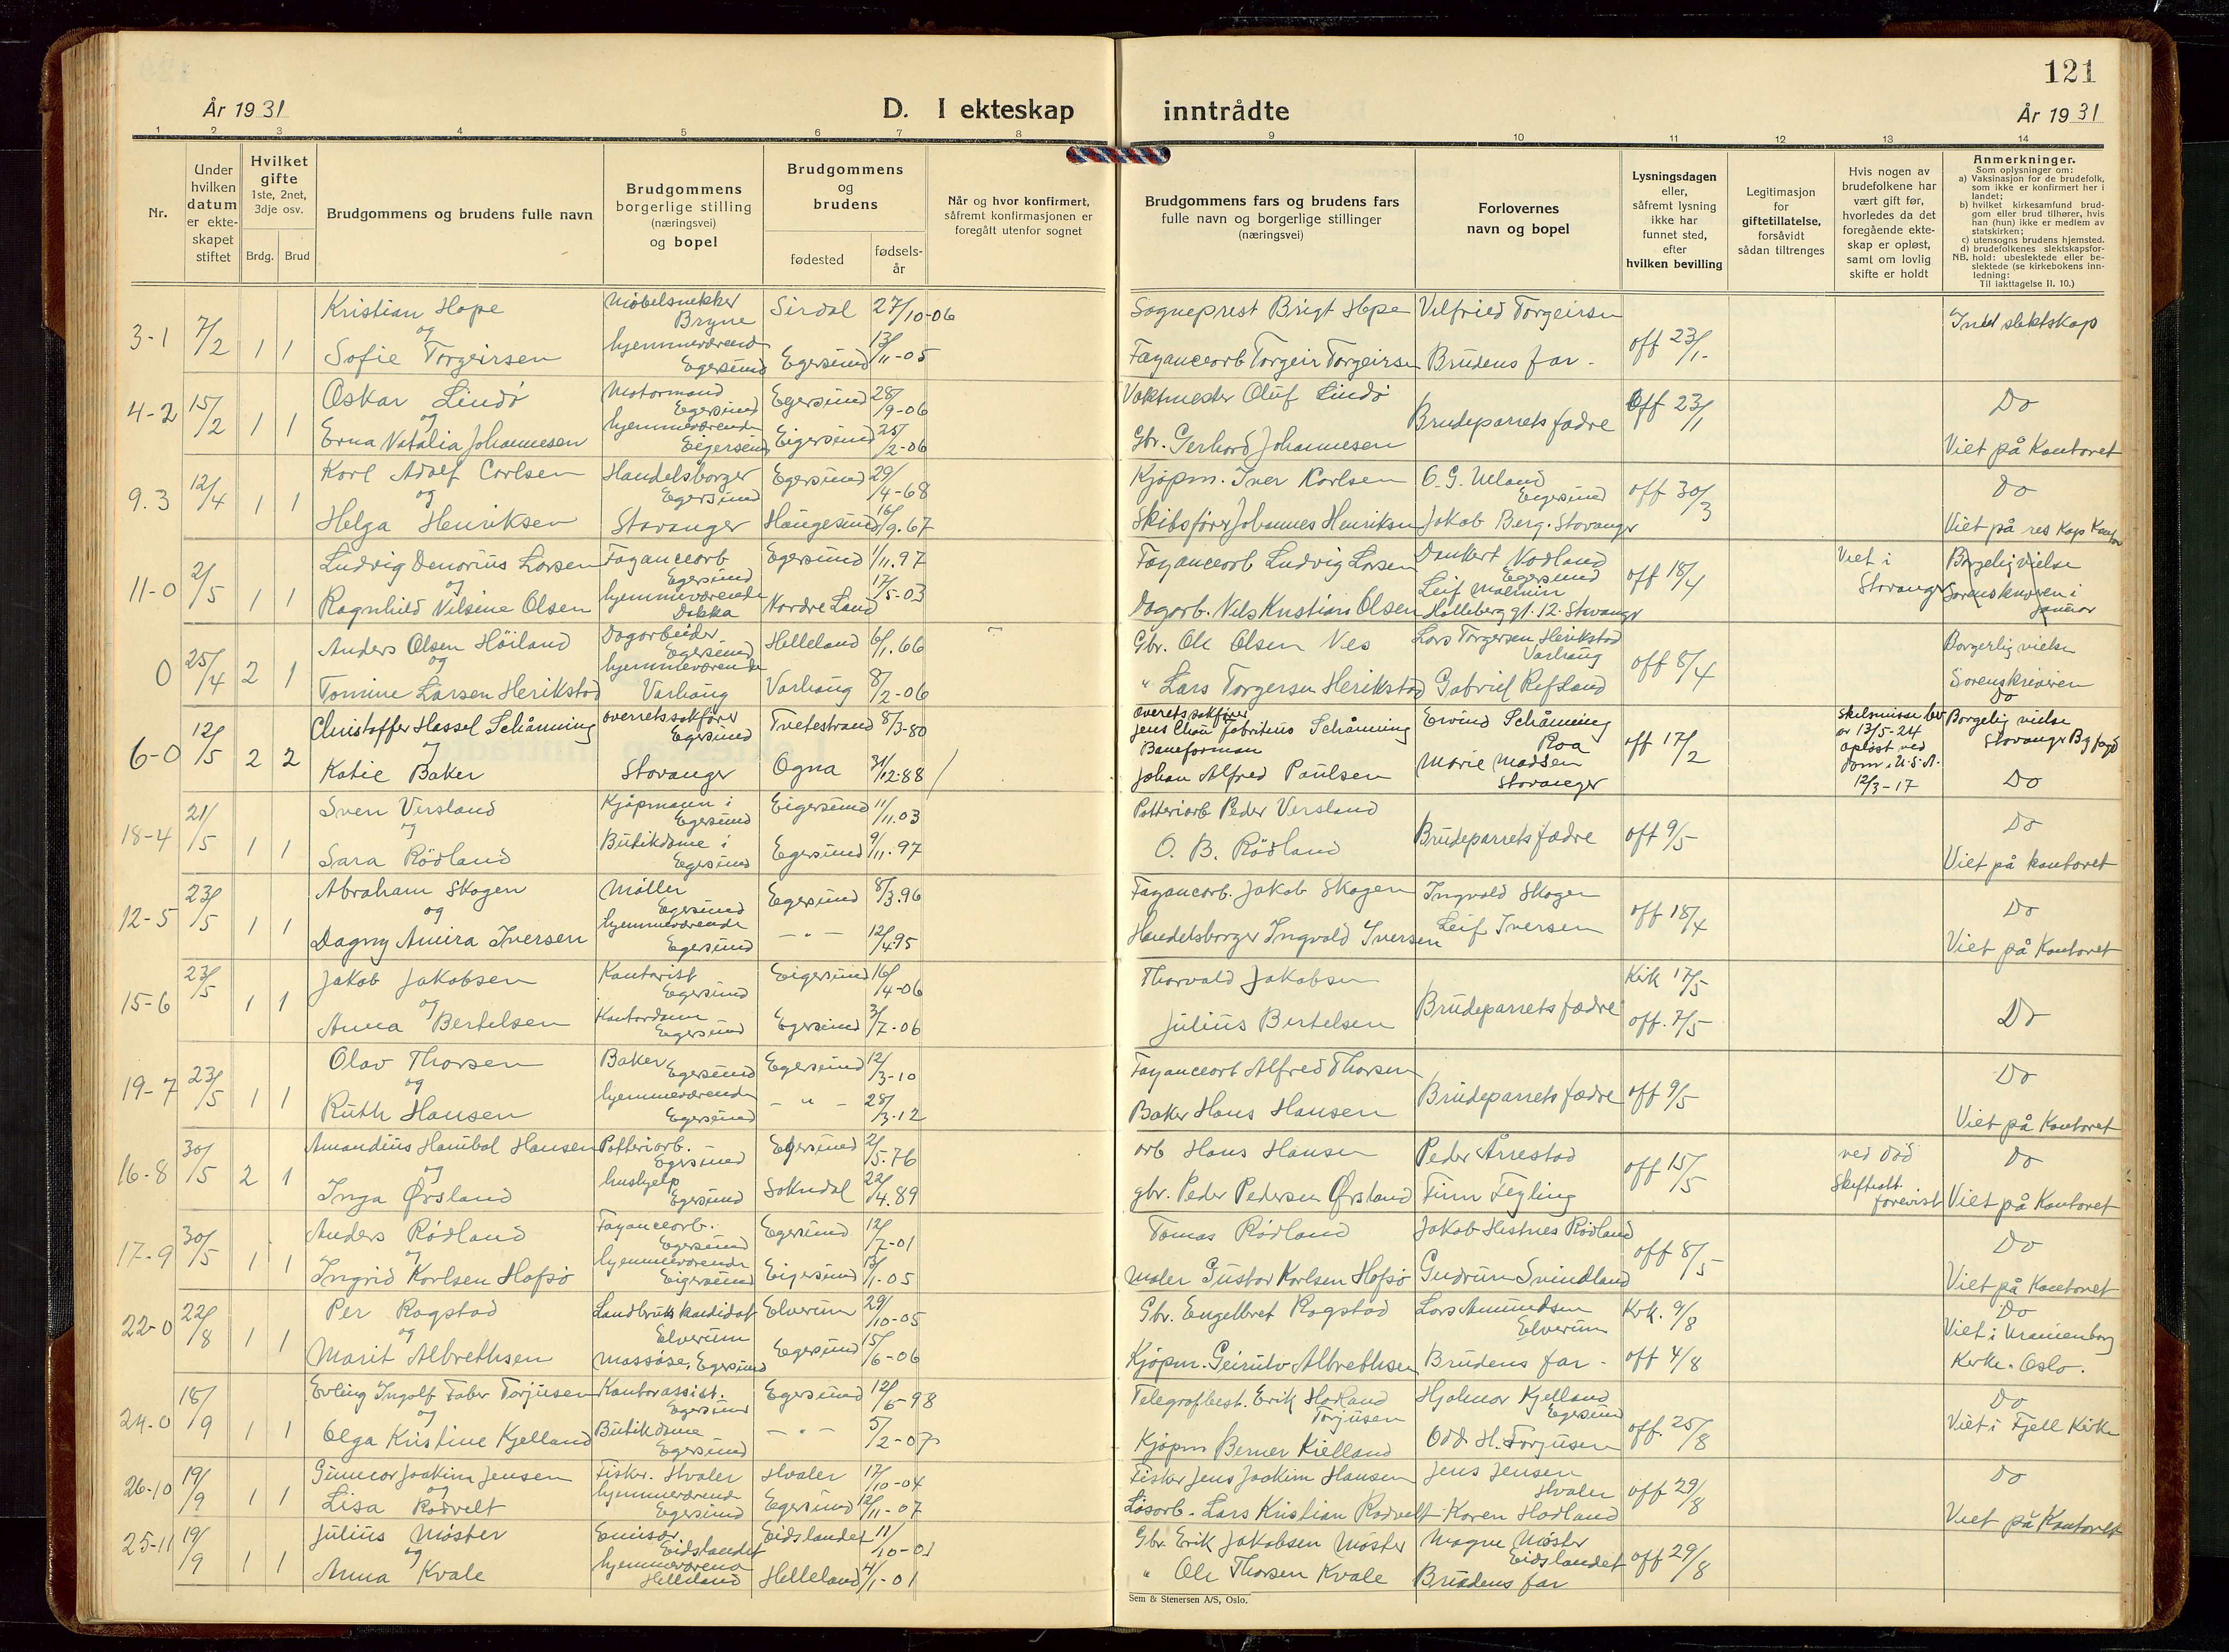 121
År 1931
D. I ekteskap
inntrådte
År 1931
1 2 3 4 5 6 7 8 9 10 11 12 13 14
Nr.
Under hvilken datum er ekte-skapet stiftet
Hvilket gifte
1ste, 2net, 3dje osv.
Brdg. Brud
Brudgommens og brudens fulle navn
Brudgommens borgerlige stilling (næringsvei) og bopel
Brudgommens og brudens
fødested
fødsels-år
Når og hvor konfirmert, såfremt konfirmasjonen er foregått utenfor sognet
Brudgommens fars og brudens fars
fulle navn og borgerlige stillinger
(næringsvei)
Forlovernes navn og bopel
Lysningsdagen eller, såfremt lysning ikke har funnet sted, efter hvilken bevilling
Legitimasjon for giftetillatelse, forsåvidt sådan tiltrenges
Hvis nogen av brudefolkene har vært gift før, hvorledes da det foregående ekte-skap er opløst, samt om lovlig skifte er holdt
Anmerkninger.
Som oplysninger om:
a) Vaksinasjon for de brudefolk, som ikke er konfirmert her i landet;
b) hvilket kirkesamfund brud-gom eller brud tilhører, hvis han (hun) ikke er medlem av statskirken;
c) utensogns brudens hjemsted.
d) brudefolkenes slektskapsfor-
NB. hold: ubeslektede eller be-slektede (se kirkebokens inn-ledning:
Til iakttagelse II. 10.)
3-1 7/2 1 1 Kristian Hope Møbelsnekker Bryne Sirdal 27/10-06 Sogneprest Brigt Hope Vilfried Torgeirsen off 23/1- Intet slektskap
og
Sofie Torgeirsen hjemmeværende Egersund Egersund 13/11-05 Fayancearb Torgeir Torgeirsen Brudens far -
4-2 15/2 1 1 Oskar Lindø Motormand Egersund Egersund 28/9-06 Vaktmester Oluf Lindø Brudeparrets fædre Off 23/1 Do
og
Erna Natalia Johannesen hjemmeværende Eigersund Eigersund 25/2-06 Gbr. Gerhard Johannesen Viet på Kontoret
9.3 12/4 1 1 Karl Adolf Carlsen Handelsborger Egersund Egersund 29/4-68 Kjøpm. Iver Karlsen O. G. Ueland Eigersund off 30/3 Do
og
Helga Henriksen Stavanger Haugesund 16/9.67 Skibsfører Johannes Henriksen Jakob Berg. Stavanger Viet på res Kap Kontor
11-0 2/5 1 1 Ludvig Denorius Larsen Fayancearb Egersund Egersund 1/11.97 Fayancearb Ludvig Larsen Dankert Nodland Egersund off 18/4 Viet i Stavanger Borgelig vielse
og
Ragnhild Nilsine Olsen hjemmeværende Dokka Nordre Land 17/5-03 Dagarb. Nils Kristian Olsen Leif Malmin Holleberg gt. 12. Stavanger Sorenskriveren i Jannar
0 25/4 2 1 Anders Olsen Høiland Dagarbeider Egersund Helleland 6/1.66 Gbr. Ole Olsen Ves Lars Torgersen Herikstad Varhaug off 8/4 Borgerlig vielse
og
Tomine Larsen Herikstad hjemmeværende Varhaug Varhaug 8/2-06 " Lars Torgersen Herikstad Gabriel Refsland Sorenskriveren
6-0 12/5 2 2 Christoffer Hassel Schånning overretssakfører Egersund Tvedestrand 8/3-80 Overetssakfører Jens Chan Fabritius Schånning Eivind Schånning Roa off 17/2 Skilsmisse bev av 13/5-24 Do Borgelig vielse Stavanger By fogd
og
Katie Baker Stavanger Ogna 31/12.88 Baneforman Johan Alfred Paulsen Marie Madsen Stavanger opløst ved dom i U.S.A. 12/3-17 Do
18-4 21/5 1 1 Sven Versland Kjøpmann i Egersund Eigersund 11/11.03 Potteriarb Peder Versland Brudeparrets fædre off 9/5 Do
og
Sara Rødland Butikdame i Egersund Egersund 9/11.97 O. B. Rødland Viet på kontoret
12-5 23/5 1 1 Abraham Skogen Møller Egersund Egersund 8/3.96 Fayancarb. Jakob Skogen Ingvald Skogen off 18/4 Do
og
Dagny Amira Iversen hjemmeværende Egersund - " - 12/4.95 Handelsborger Ingvald Iversen Leif Iversen Viet på Kontoret
15-6 23/5 1 1 Jakob Jakobsen Kontorist Egersund Eigersund 16/4-06 Thorvald Jakobsen Brudeparrets fædre Kirk 17/5 Do
og
Anna Bertelsen Kontordame Egersund Egersund 3/7-06 Julius Bertelsen off. 7/5
19-7 23/5 1 1 Olav Thorsen Baker Egersund Egersund 12/3-10 Fayancearb Alfred Thorsen Brudeparrets fædre off 9/5 Do
og
Ruth Hansen hjemmeværende Egersund - " - 28/3-12 Baker Hans Hansen Viet på Kontoret
16-8 30/5 2 1 Amandius Hanibal Hansen Potteriarb. Egersund Egersund 2/5.76 arb Hans Hansen Peder Årrestad off 15/5 ved død Do
og
Inga Ørsland hushjelp Egersund Sokndal 22/4.89 gbr. Peder Pedersen Ørsland Finn Fegling Skifteatt. forevist Viet på Kontoret
17-9 30/5 1 1 Anders Rødland Fayancearb. Egersund Egersund 12/7-01 Tomas Rødland Jakob Hestnes Rødland off 8/5 Do
og
Ingrid Karlsen Hofsø hjemmeværende Eigersund Eigersund 13/1-05 Maler Gustav Karlsen Hofsø Gudrun Svindland Viet på Kontoret
22-0 22/8 1 1 Per Rogstad Landbruks kandidat Elverum Elverum 29/10-05 Gbr. Engelbret Rogstad Lars Amundsen Elverum Krk. 9/8 Do
og
Marit Albrethsen Massøse, Egersund Egersund 15/6-06 Kjøpm. Geirulv Albrethsen Brudens far - off 4/8 Viet i Uranienborg Kirke. Oslo.
24-0 18/9 1 1 Erling Ingolf Faber Torjusen Kontorassist. Egersund Egersund 12/6-98 Telegrafbest. Erik Hodland Torjusen Hjalmar Kjelland Egersund off. 25/8 Do
og
Olga Kristine Kjelland Butikdame Egersund - " - 5/2-07 Kjøpm Berner Kielland Odd H. Torjusen Viet i Fjell Kirke
26-10 19/9 1 1 Gunnar Joakim Jensen Fisker. Hvaler Hvaler 17/10-04 Fisker Jens Joakim Hansen Jens Jensen Hvaler off 29/8 Do
og
Lisa Rødvelt hjemmeværende Egersund Egersund 12/11-07 Løsarb. Lars Kristian Rødvelt - Karen Hodland Viet på Kontoret
25-11 19/9 1 1 Julius Møster Emisær. Eidslandet Eidslandet 11/10-01 Gbr Erik Jakobsen Møster Magne Møster Eidslandet off 29/8
og
Anna Kvale hjemmeværend Helleland Helleland 4/1-01 " Ole Thorsen Kvale Brudens far
Sem & Stenersen A/S, Oslo.